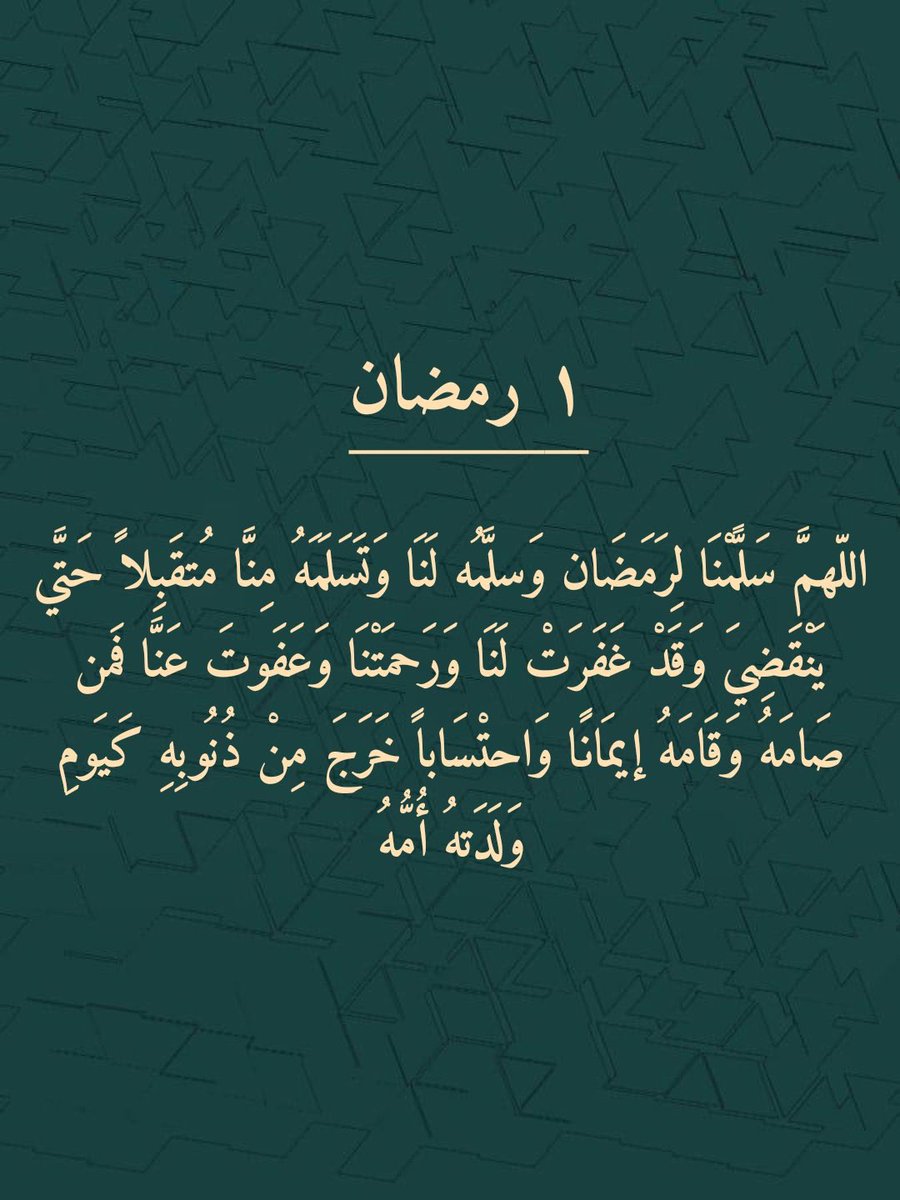 ١ رمضان
اللّهمَّ سَلَّمْنَا لِرَمَضَان وَسلَّمُه لَنَا وَتَسَلَمَهُ مِنَّا مُتقَبِلاً حَتَّي
يَنْقَضِيَ وَقَدْ غَفَرَتْ لَنَا وَرَحَمَتْنَا وَعَفَوتَ عَنَّا فَمن
صَامَهُ وَقَامَهُ إيمَانًا وَاحتْسَاباً خَرَجَ مِنْ ذُنُوبِهِ كَيَومِ
وَلَدَتهُ أُمُّهُ